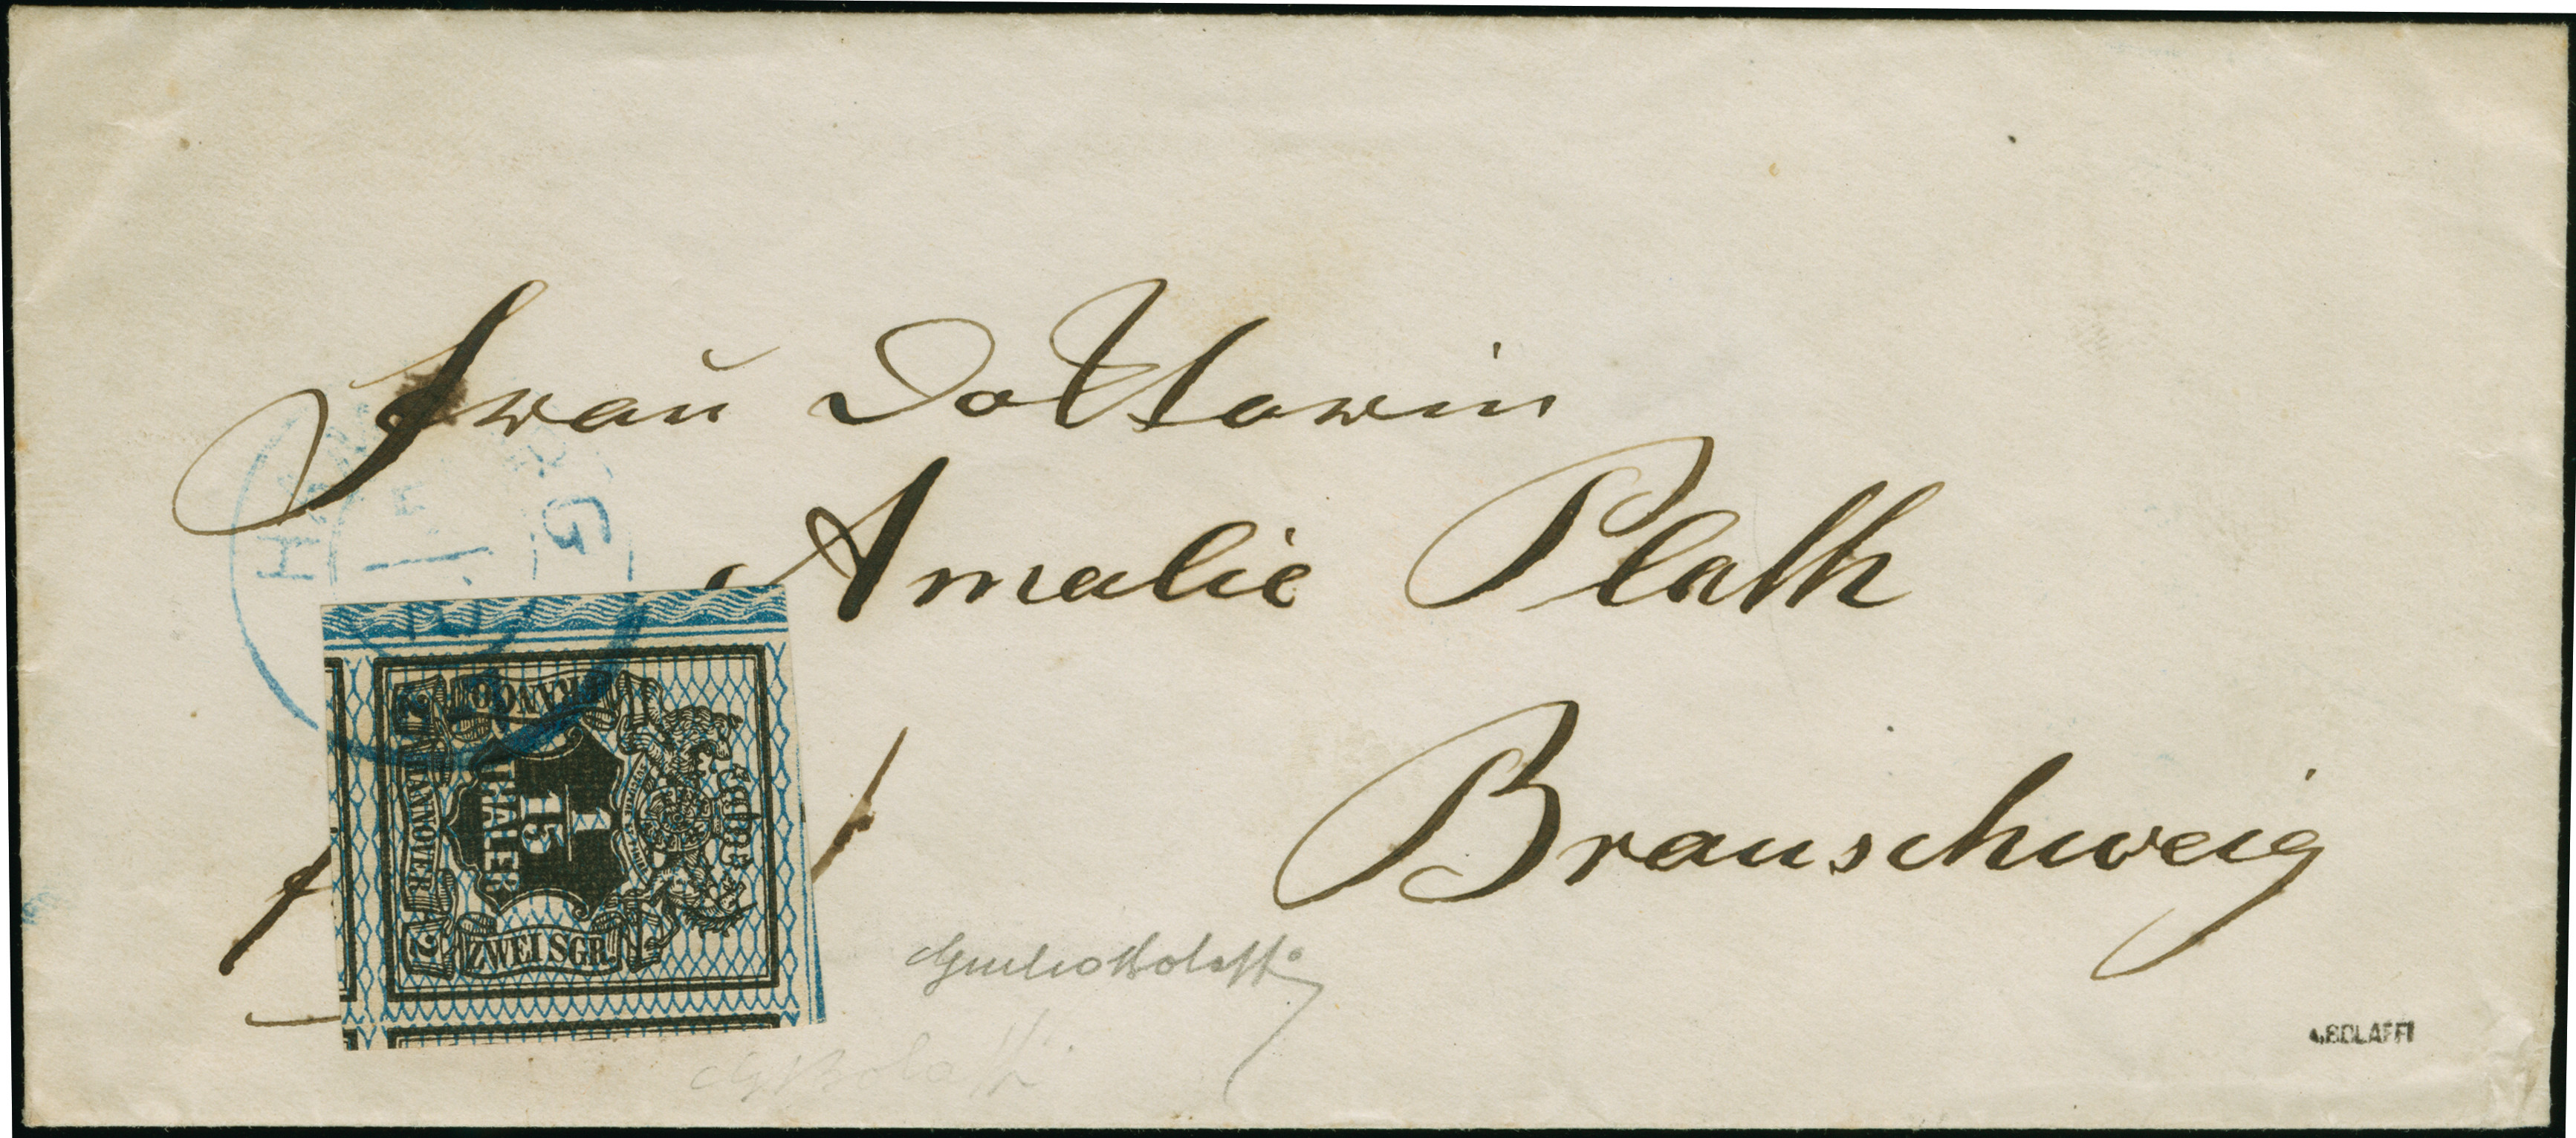 Frau Doktorin
Amalie Plath
Brauschweig
FRANCO
2 HANNOVER 2
1
15
THALER
ZWEI SGR.
Giulio Bolaffi
G Bolaffi
G.BOLAFFI